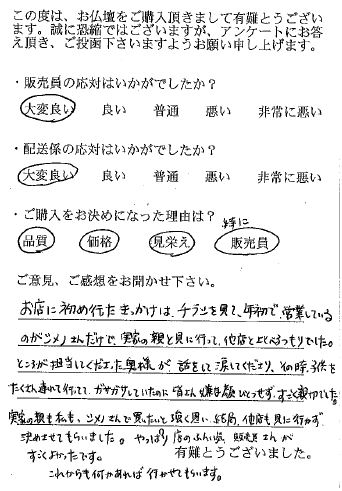 この度は、お仏壇をご購入頂きまして有難とうござい
ます。誠に恐縮ではございますが、アンケートにお答
え頂き、ご投函下さいますようお願い申し上げます。
・販売員の応対はいかがでしたか？
大変良い 良い 普通 悪い 非常に悪い
・配送係の応対はいかがでしたか？
大変良い 良い 普通 悪い 非常に悪い
・ご購入をお決めになった理由は？ 特に
品質 価格 見栄え 販売員
ご意見、ご感想をお聞かせ下さい。
お店に初め行たきっかけは、チラシを見て、年初で、営業している
のがシメノさんだけで、実家の親と見に行って、他店とくらべるつもりでした。
ところが担当してくださった奥様が 話をして涙してくださり、その時、子供を
たくさん連れて行ってて、ガサガサしていたのに 皆さん嫌な顔ひとつせず、すごく親切でした。
実家の親も私も、シメノさんで買いたいと強く思い、結局、他店も見に行かず
決めさせてもらいました。やっぱり店のふんい気 販売員さんが
すごくよかったです。 有難とうございました。
これからも何かあれば行かせてもらいます。